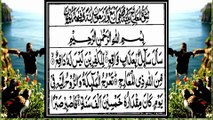 بسم الله الرحمن الرحيم
سال سائل بعذاب واقع للكفرين ليس له دافع
من الله ذي المعارج تعرج الملئكة والروح اليه في
يوم كان مقداره خمسين الف سنة فاصبر صبرا